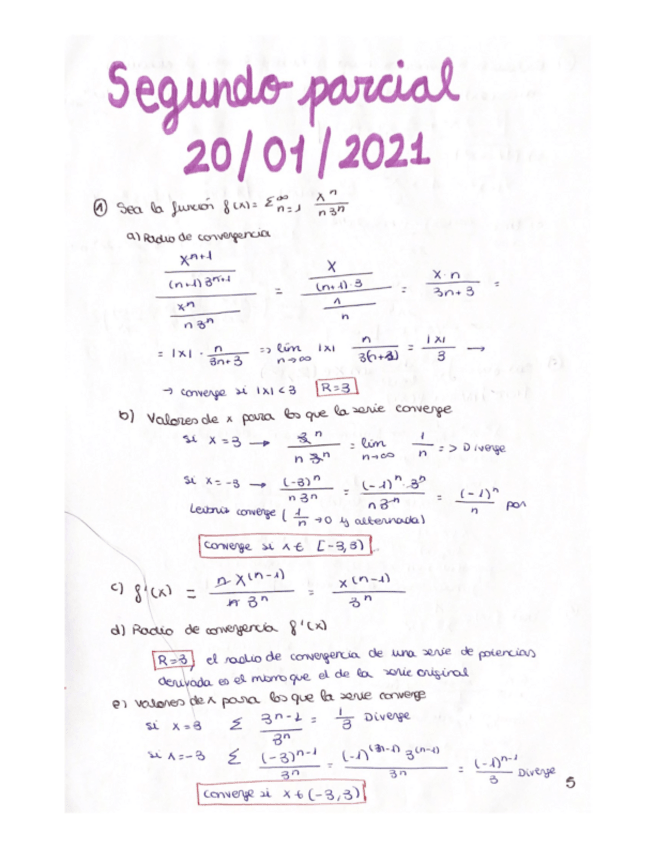 Segundo parcial
20/01/2021
① Sea la función f(x) = Σ^∞_{n=1} x^n / n3^n
a) Radio de convergencia
(x^{n+1} / (n+1)3^{n+1}) / (x^n / n3^n) = (x / (n+1)·3) / (1 / n) = x·n / 3n+3 =
= |x| · n / 3n+3 => lim n→∞ |x| n / 3(n+1) = |x| / 3 →
→ converge si |x|<3 R=3
b) Valores de x para los que la serie converge
si x=3 → 3^n / n 3^n = lim n→∞ 1/n => Diverge
si x=-3 → (-3)^n / n3^n = (-1)^n·3^n / n3^n = (-1)^n / n por
Leibniz converge (1/n →0 y alternada)
Converge si x ∈ [-3,3)
c) f'(x) = n x^(n-1) / n 3^n = x^(n-1) / 3^n
d) Radio de convergencia f'(x)
R=3, el radio de convergencia de una serie de potencias
derivada es el mismo que el de la serie original
e) Valores de x para los que la serie converge
si x=3 Σ 3^{n-1} / 3^n = 1/3 Diverge
si x=-3 Σ (-3)^{n-1} / 3^n = (-1)^(n-1) 3^(n-1) / 3^n = (-1)^{n-1} / 3 Diverge
Converge si x ∈ (-3,3)
5